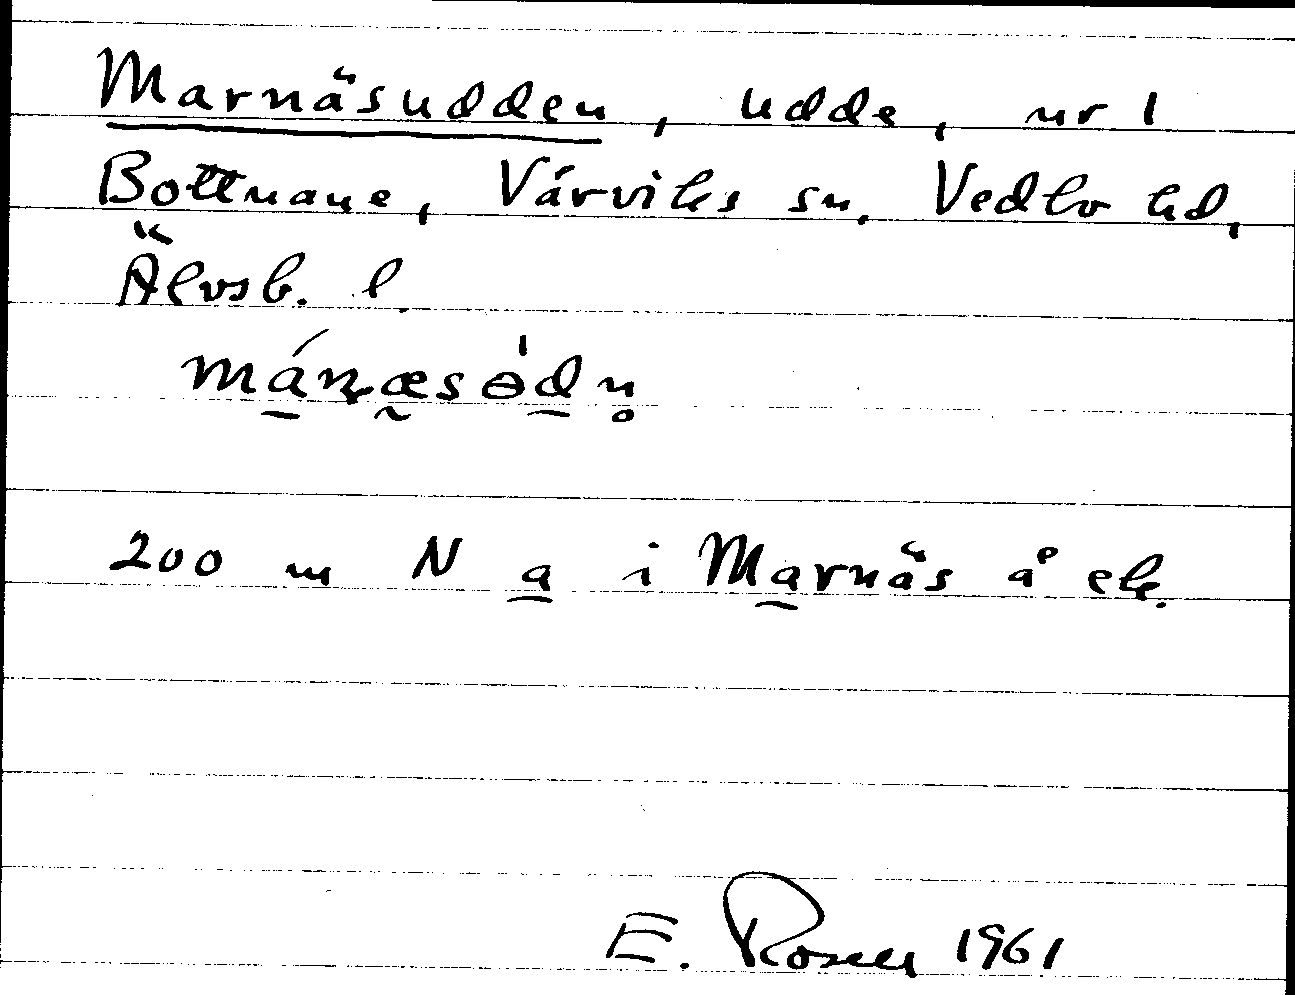 Marnäsudden, udde, nr 1
Bottnane, Vårviks sn, Vedbo hd,
Älvsb. l.
mánæsɵ̍dn̥
200 m N a i Marnäs å ek.
E. Rosell 1961